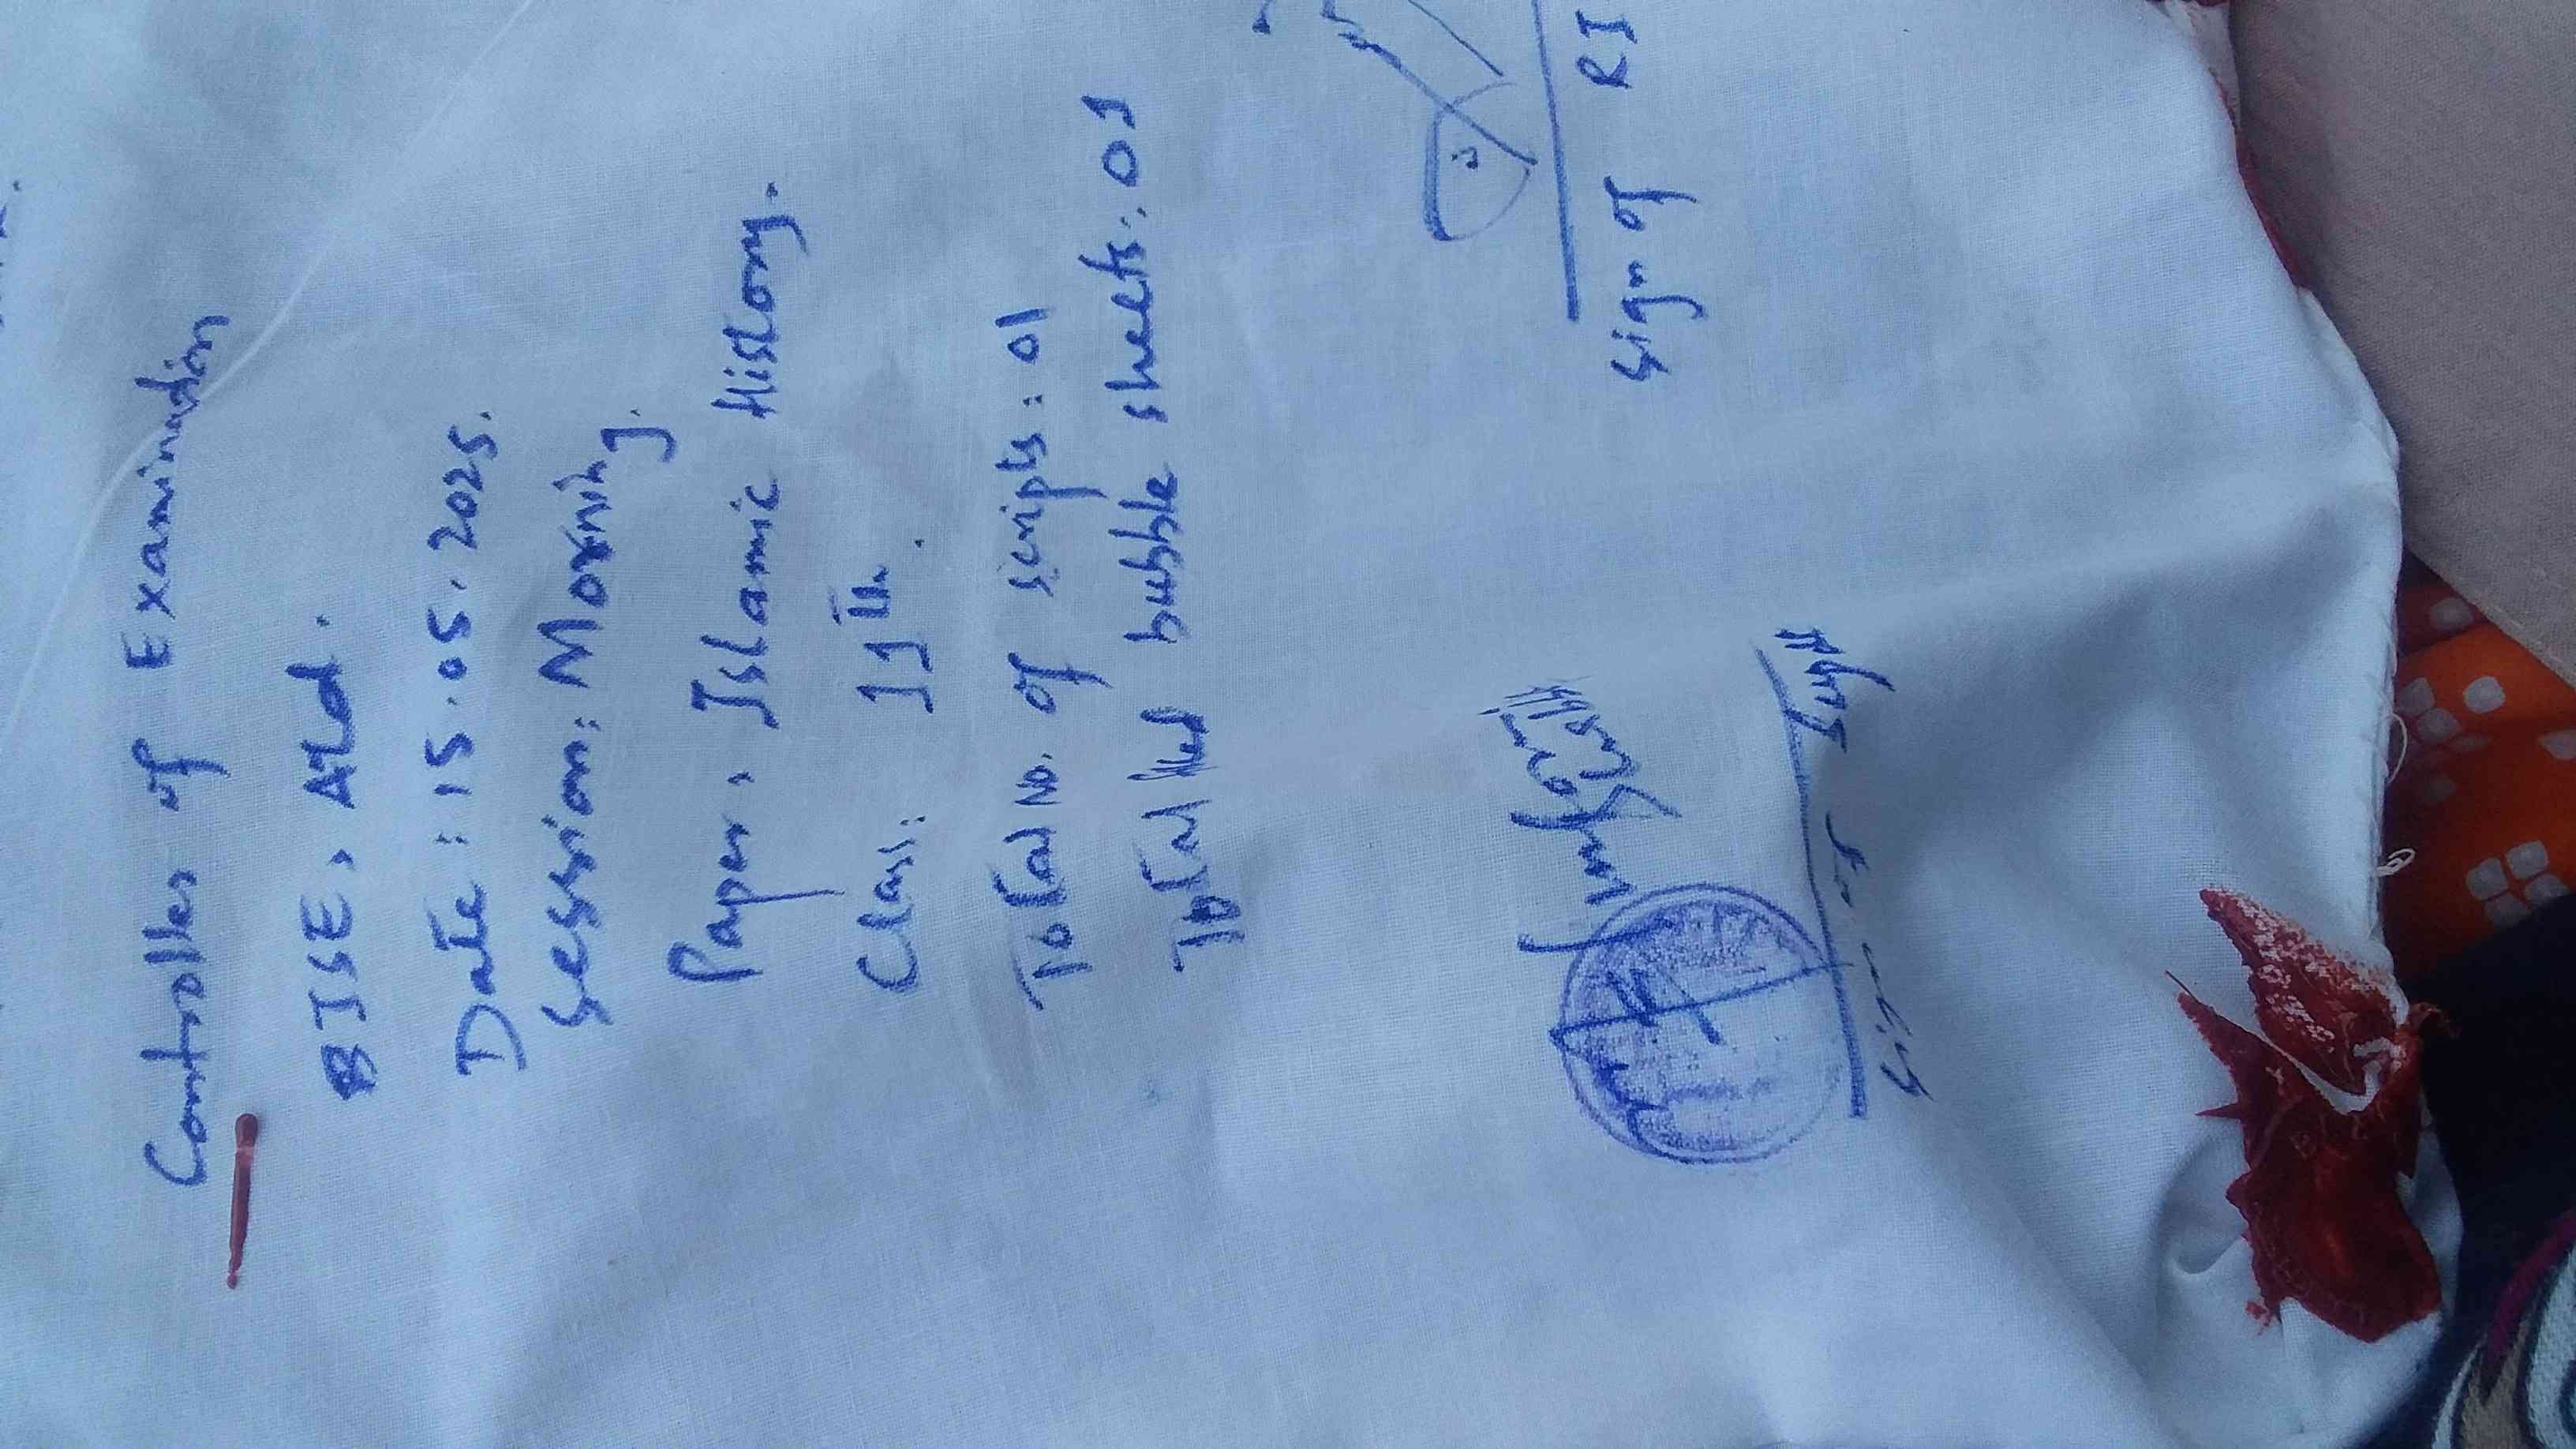 Controller of Examination
BISE, Atd.
Date: 15.05.2025.
Session: Morning.
Paper, Islamic History.
Class: 11th.
Total No. of scripts: 01
Total bubble sheets: 01
Sign of RI
Sign of Supdt